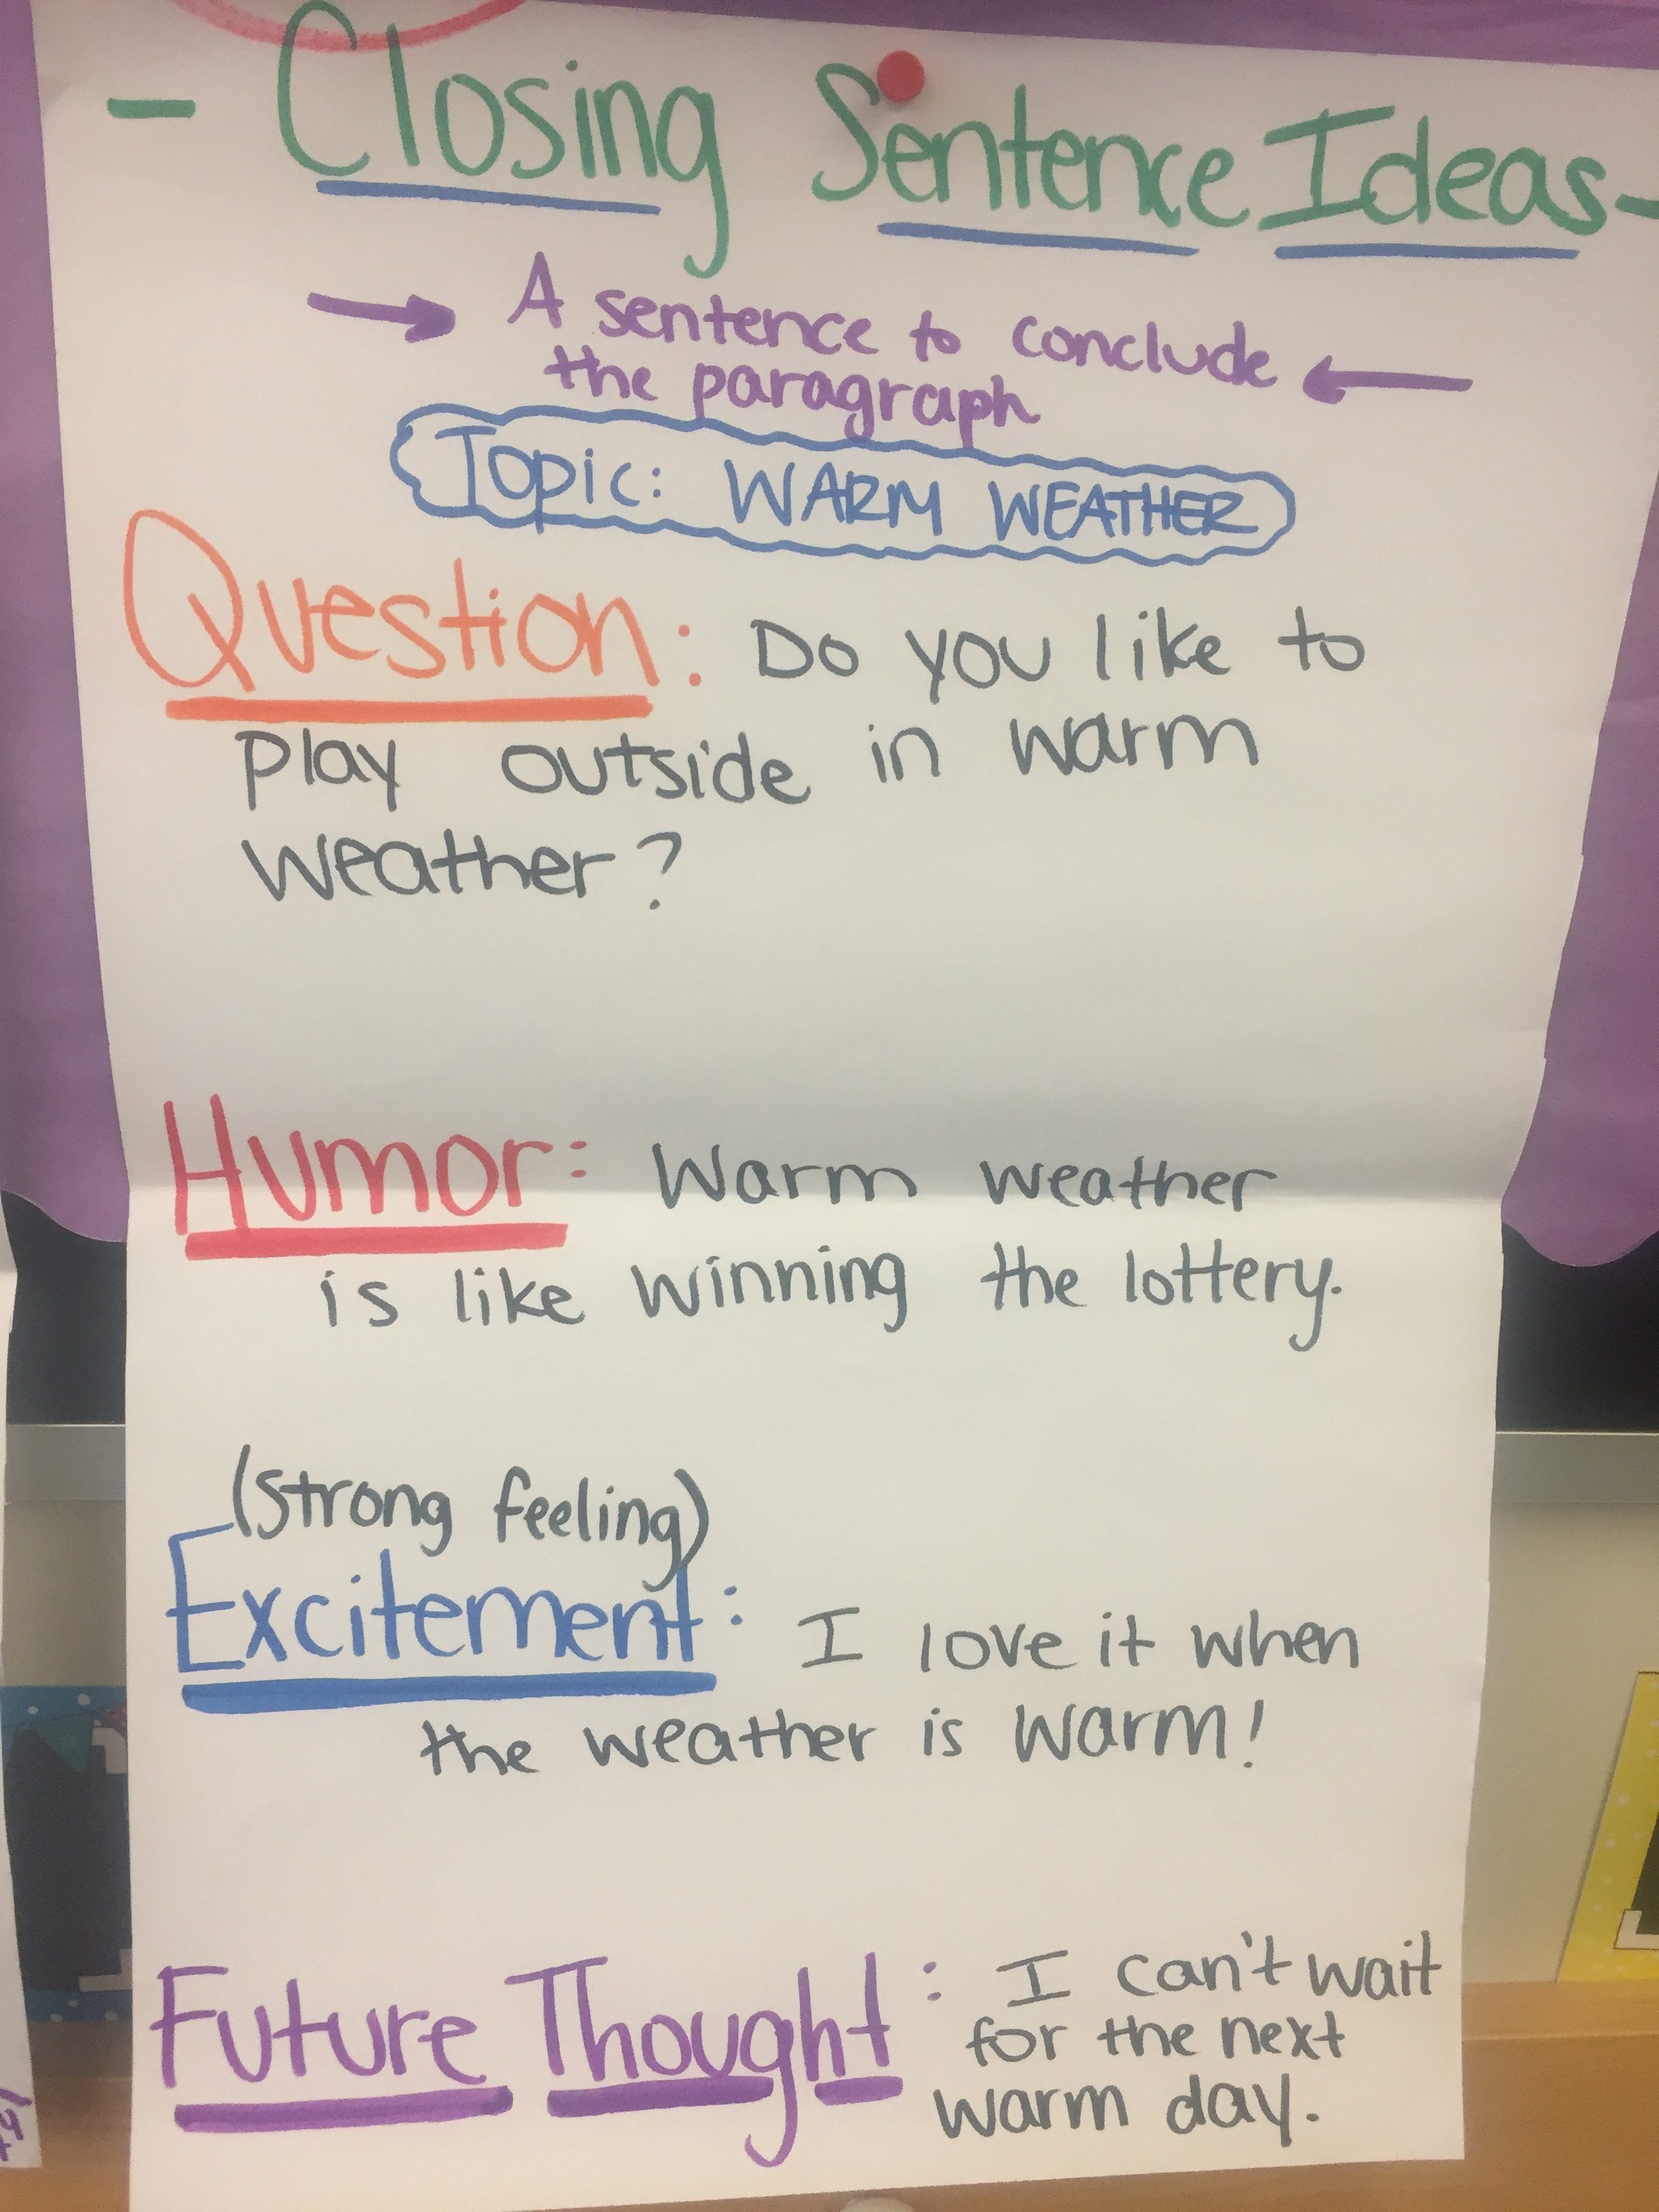 - Closing Sentence Ideas -
A sentence to conclude
the paragraph
Topic: WARM WEATHER
Question: Do you like to
play outside in warm
weather?
Humor: Warm weather
is like winning the lottery.
(strong feeling)
Excitement: I love it when
the weather is warm!
Future Thought: I can't wait
for the next
warm day.